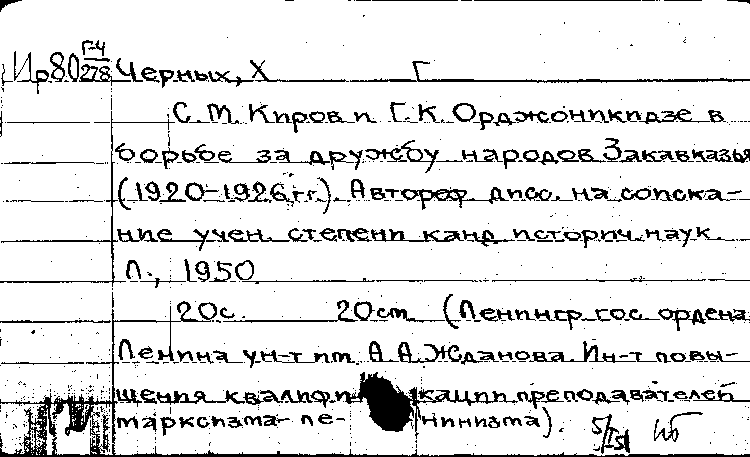 Г-4
Ир80 278 Черных, Х Г
С. М. Киров и Г. К. Орджоникидзе в
борьбе за дружбу народов Закавказья
(1920-1926 гг.). Автореф. дисс. на соиска-
ние учен. степени канд. историч. наук.
Л., 1950
20с. 20см (Ленингр. гос. ордена
Ленина ун-т им. А. А. Жданова. Ин-т повы-
шения квалификации преподавателей
марксизма-ленинизма).